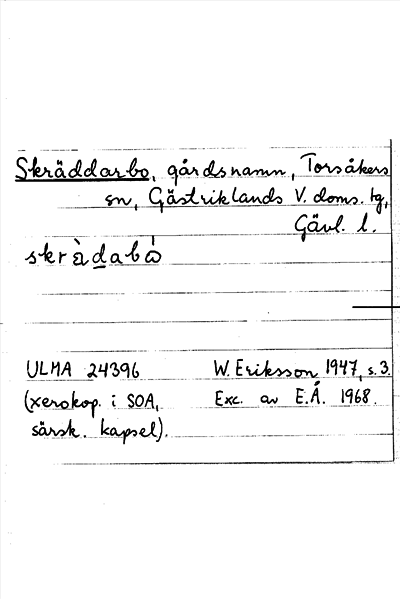 Skräddarbo, gårdsnamn, Torsåkers
sn, Gästriklands V. doms. tg,
Gävl. l.
skrὰdabὼ
ULMA 24396 W. Eriksson 1947, s. 3.
(xerokop. i SOA, Exc. av E.Å. 1968.
särsk. kapsel).